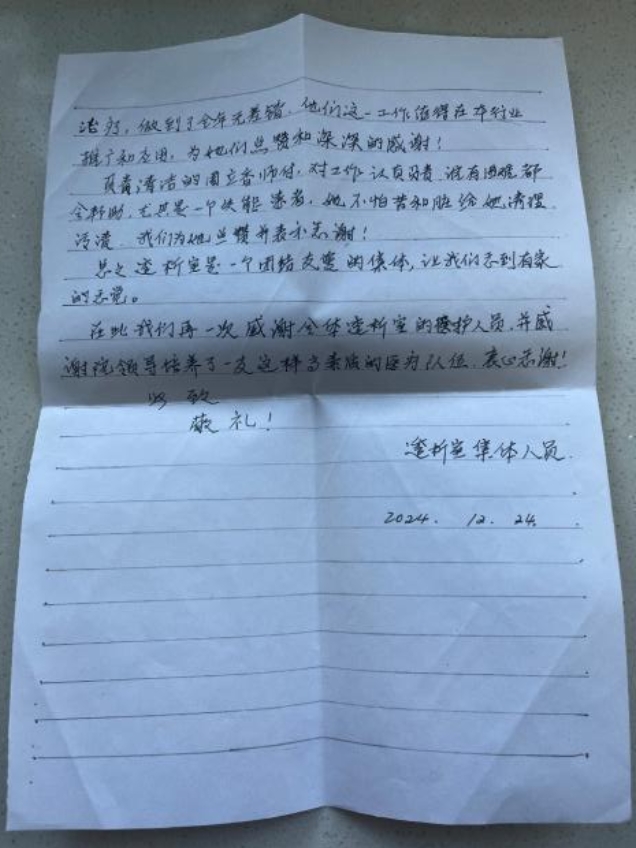 治疗，做到了全年无差错，他们这一工作值得在本行业
推广和应用，为她们点赞和深深的感谢！
负责清洁的周立香师付，对工作认真负责，谁有困难都
会帮助，尤其是一个失能患者，她不怕苦和脏给她清理
污渍，我们为她点赞并表示感谢！
总之透析室是一个团结友爱的集体，让我们感到有家
的感觉。
在此我们再一次感谢全体透析室的医护人员，并感
谢院领导培养了一支这样高素质的医务队伍，衷心感谢！
此致
敬礼！
透析室集体人员
2024. 12. 24.